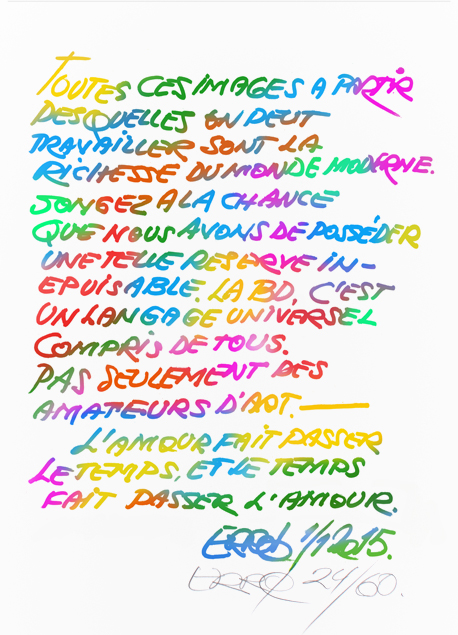 TOUTES CES IMAGES A PARTIR
DESQUELLES ON PEUT
TRAVAILLER SONT LA
RICHESSE DU MONDE MODERNE.
SONGEZ A LA CHANCE
QUE NOUS AVONS DE POSSÉDER
UNE TELLE RESERVE IN-
EPUISABLE. LA BD, C'EST
UN LANGAGE UNIVERSEL
COMPRIS DE TOUS.
PAS SEULEMENT DES
AMATEURS D'ART.
L'AMOUR FAIT PASSER
LE TEMPS, ET LE TEMPS
FAIT PASSER L'AMOUR.
ERRÓ 1/1 2015.
ERRÓ 24/60.